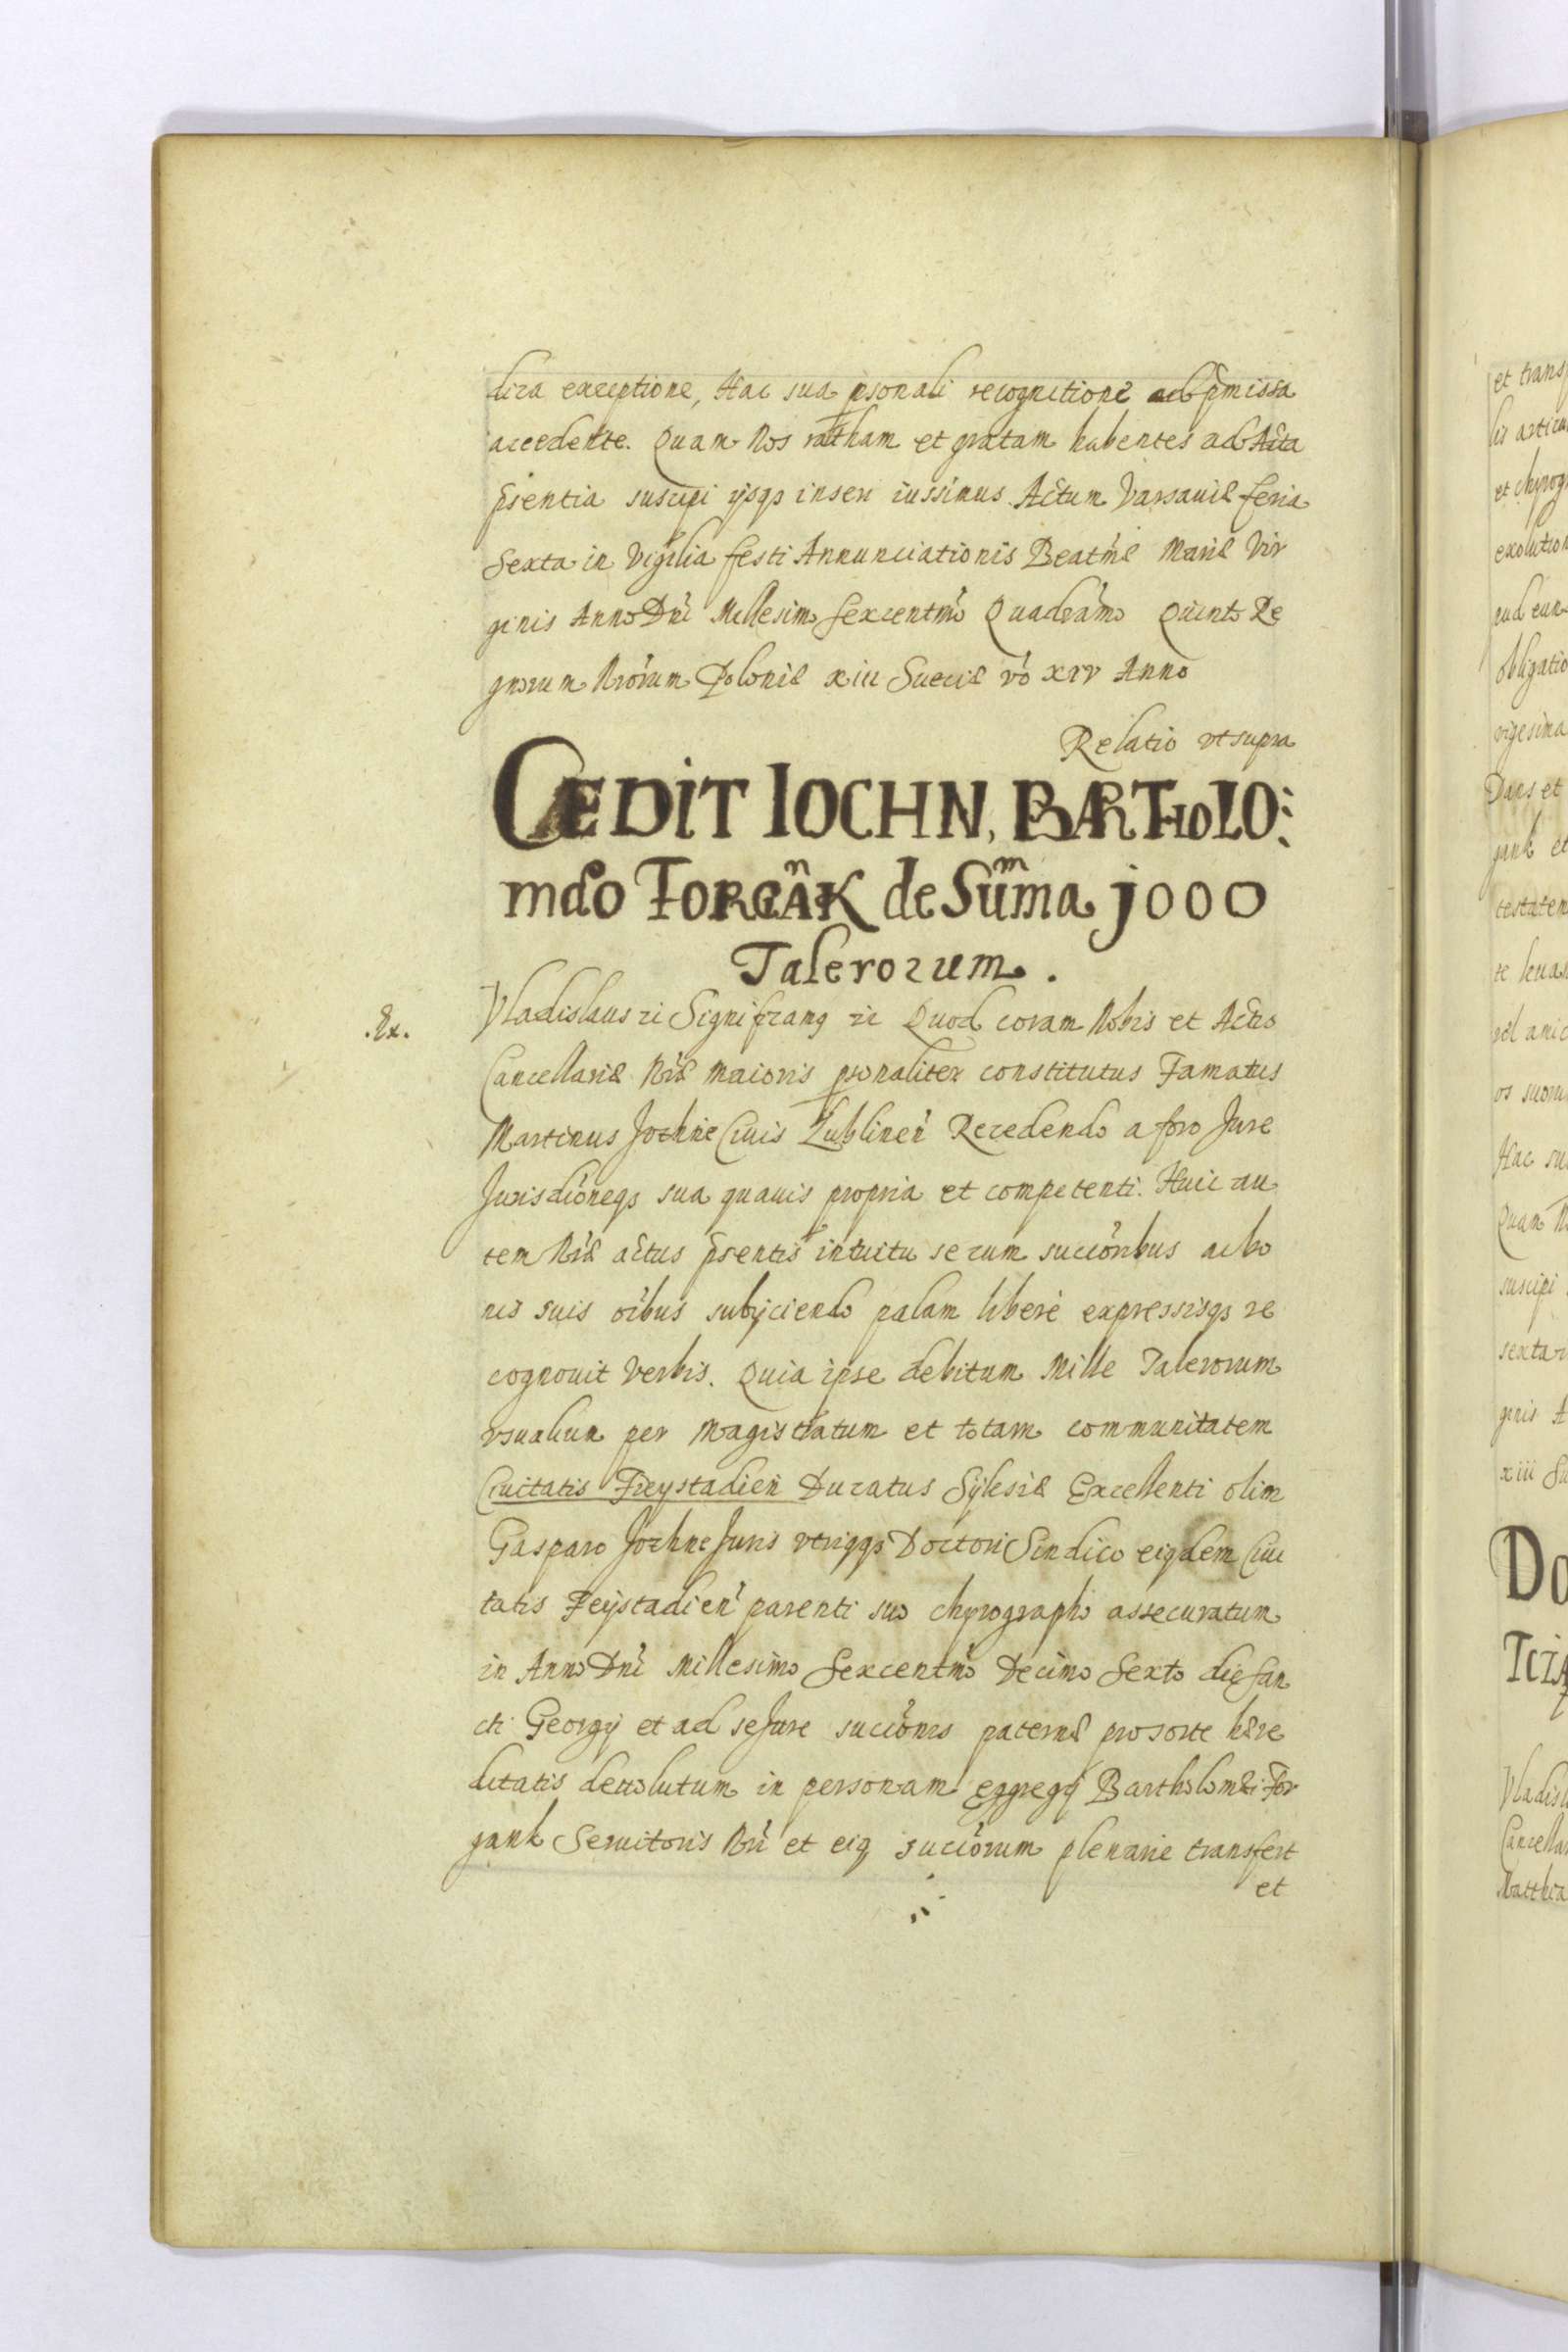 dica exceptione, Hac sua psonali recognitione ad pmissa
accedente. Quam Nos ratham et gratam habentes ad Acta
psentia suscipi ijsqs inseri iussimus. Actum Varsauiæ feria
Sexta in Vigilia festi Annunciationis Beatmæ Mariæ Vir
ginis Anno Dni Millesimo Sexcentmo Quadramo Quinto Re
gnorum Nrorum Poloniæ xiii Sueciæ vo xiv Anno
Relatio vt supra
CÆDIT IOCHN, BARTHOLO:
mæo FORGANK de Summa 1000
Talerorum.
.Ex.
Vladislaus zc Significamq zc Quod coram Nobis et Actis
Cancellariæ Nræ Maioris psonaliter constitutus Famatus
Martinus Jochne Ciuis Lublinen Recedendo a foro Jure
Jurisdioneqs sua quauis propria et competenti. Huic au
tem Nræ actus psentis intuitu se cum succoribus ac bo
nis suis oibus subijciendo palam liberè expressisqs re
cognouit Verbis. Quia ipse debitum Mille Talerorum
vsualium per Magistratum et totam communitatem
Ciuitatis Freystadien Ducatus Sÿlesiæ Excellenti olim
Gasparo Jochne Juris vtriqqs Doctori Sindico eiqdem Ciui
tatis Feÿstadien parenti suo chyrographo assecuratum
in Anno Dni Millesimo Sexcentmo Decimo Sexto die San
cti Georgij et ad se Jure succionis paternæ pro sorte hære
ditatis deuolutum in personam eggregij Bartholomæi For
gank Seruitoris Nri et eiq succorum plenarie transfert
et
et trans
lis articu
et chyrog
exolution
eud eun
obligatio
vigesima
Dans et
gank et
testaten
te leuan
vel amic
os suoru
Hac su
Quam N
suscipi
sexta i
ginis A
xiii Su
DO
Vladisl
Cancella
Matthia